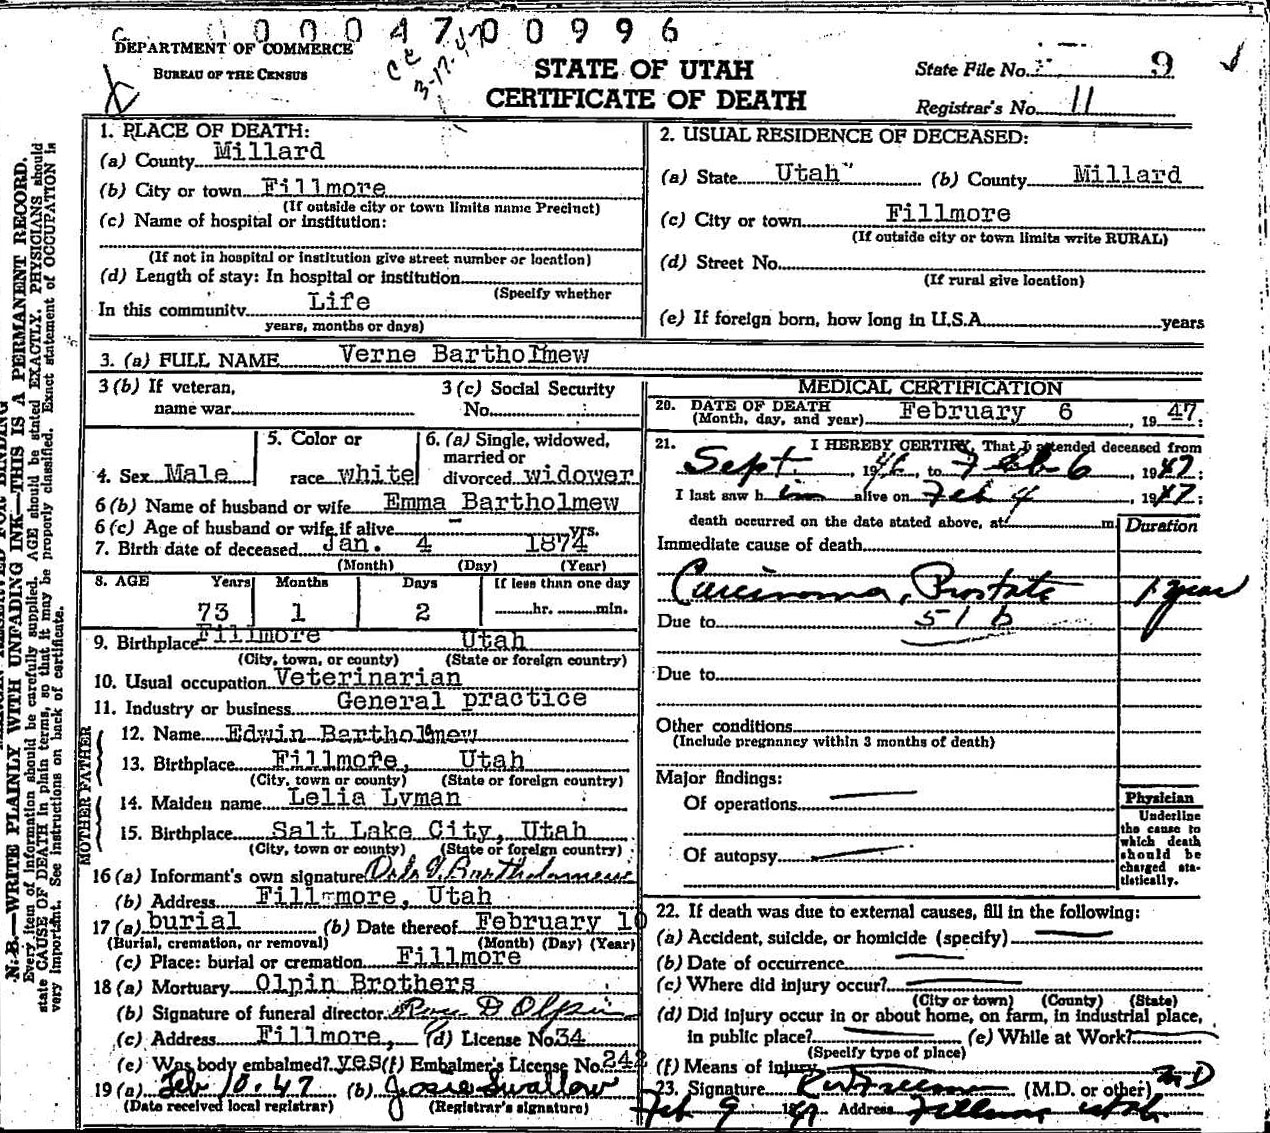 0 0 0 0 4 7 0 0 9 9 6
DEPARTMENT OF COMMERCE
BUREAU OF THE CENSUS
3-17-47
STATE OF UTAH
CERTIFICATE OF DEATH
State File No. 9
Registrar's No. 11
N.B.—WRITE PLAINLY WITH UNFADING INK—THIS IS A PERMANENT RECORD.
Every item of information should be carefully supplied. AGE should be stated EXACTLY. PHYSICIANS should
state CAUSE OF DEATH in plain terms, so that it may be properly classified. Exact statement of OCCUPATION is
very important. See instructions on back of certificate.
1. PLACE OF DEATH:
(a) County Millard
(b) City or town Fillmore
(If outside city or town limits name Precinct)
(c) Name of hospital or institution:
(If not in hospital or institution give street number or location)
(d) Length of stay: In hospital or institution
(Specify whether
In this community Life
years, months or days)
2. USUAL RESIDENCE OF DECEASED:
(a) State Utah (b) County Millard
(c) City or town Fillmore
(If outside city or town limits write RURAL)
(d) Street No.
(If rural give location)
(e) If foreign born, how long in U.S.A. years
3. (a) FULL NAME Verne Bartholmew
3 (b) If veteran,
name war
3 (c) Social Security
No.
4. Sex Male
5. Color or
race white
6. (a) Single, widowed,
married or
divorced widower
6 (b) Name of husband or wife Emma Bartholmew
6 (c) Age of husband or wife if alive - yrs.
7. Birth date of deceased Jan. 4 1874
(Month) (Day) (Year)
8. AGE Years Months Days If less than one day
73 1 2 hr. min.
9. Birthplace Fillmore Utah
(City, town, or county) (State or foreign country)
10. Usual occupation Veterinarian
11. Industry or business General practice
FATHER
12. Name Edwin Bartholmew
13. Birthplace Fillmore, Utah
(City, town or county) (State or foreign country)
MOTHER
14. Maiden name Lelia Lyman
15. Birthplace Salt Lake City, Utah
(City, town or county) (State or foreign country)
16 (a) Informant's own signature Bartholomew
(b) Address Fillmore, Utah
17 (a) burial (b) Date thereof February 10
(Burial, cremation, or removal) (Month) (Day) (Year)
(c) Place: burial or cremation Fillmore
18 (a) Mortuary Olpin Brothers
(b) Signature of funeral director D Olpin
(c) Address Fillmore, (d) License No. 34
(e) Was body embalmed? yes (f) Embalmer's License No. 242
19 (a) Feb 10. 47 (b) Josie Swallow
(Date received local registrar) (Registrar's signature)
MEDICAL CERTIFICATION
20. DATE OF DEATH
(Month, day, and year) February 6, 1947:
21. I HEREBY CERTIFY, That I attended deceased from
Sept. 1946 to Feb 6 1947
I last saw him alive on Feb 4, 1947;
death occurred on the date stated above, at m
Duration
Immediate cause of death
Carcinoma, Prostate 1 year
Due to 51b
Due to
Other conditions
(Include pregnancy within 3 months of death)
Major findings:
Of operations —
Of autopsy —
Physician
Underline
the cause to
which death
should be
charged sta-
tistically.
22. If death was due to external causes, fill in the following:
(a) Accident, suicide, or homicide (specify) —
(b) Date of occurrence —
(c) Where did injury occur? —
(City or town) (County) (State)
(d) Did injury occur in or about home, on farm, in industrial place,
in public place? — (e) While at Work? —
(Specify type of place)
(f) Means of injury —
23. Signature (M.D. or other) MD
Feb 9 1947 Address Fillmore Utah